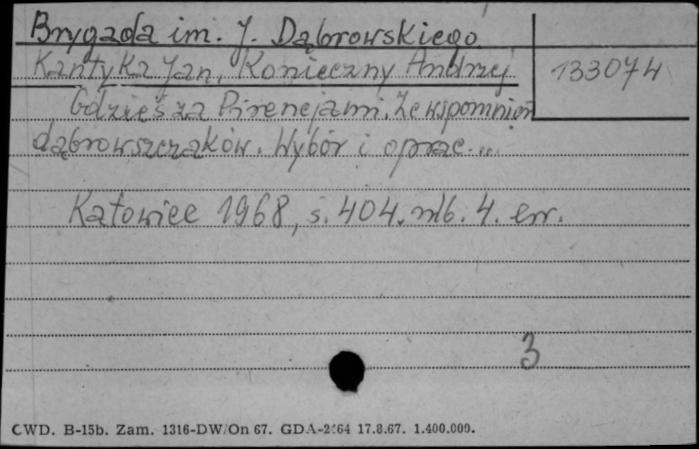 Brygada im. J. Dąbrowskiego
Kantyka Jan, Konieczny Andrzej
133074
Gdzieś za Pirenejami. Ze wspomnień
dąbrowszczaków. Wybór i oprac...
Katowice 1968, s. 404. nlb. 4. err.
3
CWD. B-15b. Zam. 1316-DW/On 67. GDA-2264 17.8.67. 1.400.000.